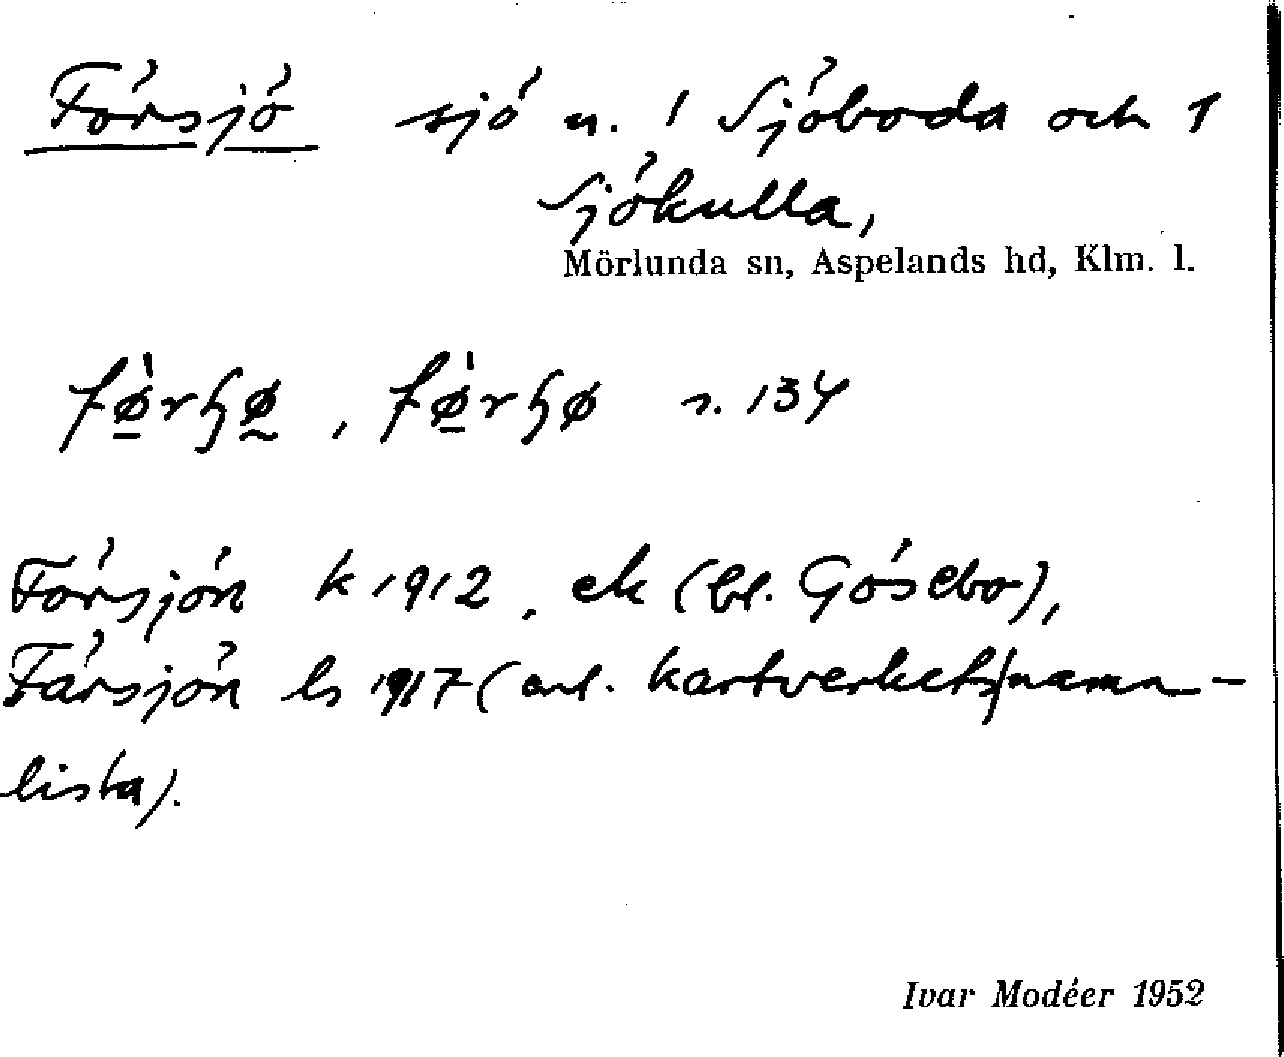 Försjö sjö n. 1 Sjöboda och 1
Sjökulla,
Mörlunda sn, Aspelands hd, Klm. l.
fø̀rɧø̰, fø̀rɧø s. 134
Försjön k 1912, ek (bl. Gösebo),
Fårsjön ls 1917 (enl. kartverkets namn-
lista).
Ivar Modéer 1952